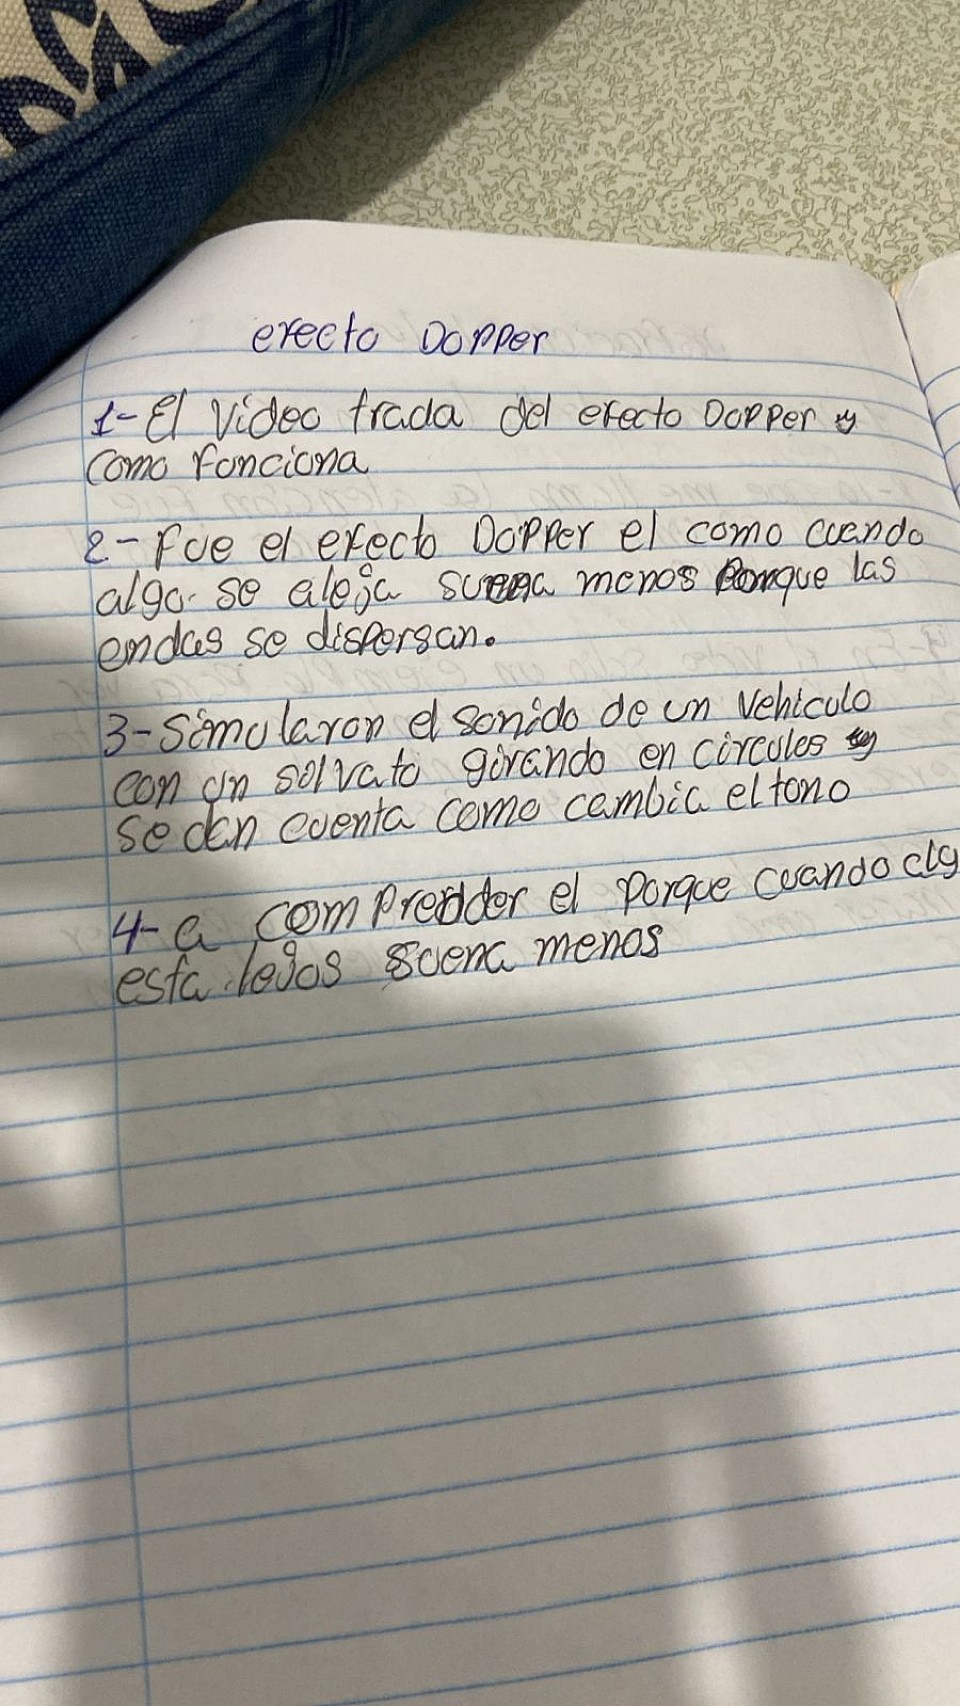 efecto Dopper
1- El Video trada del efecto Dopper y
como Fonciona
2- Fue el efecto Dopper el como cuendo
algo se aleja suena menos Porque las
ondas se dispersan.
3- Simularon el sonido de un vehiculo
con un solvato girando en circules y
se dan cuenta como cambia el tono
4- a comprender el Porque cuando alg
esta lejos suena menos